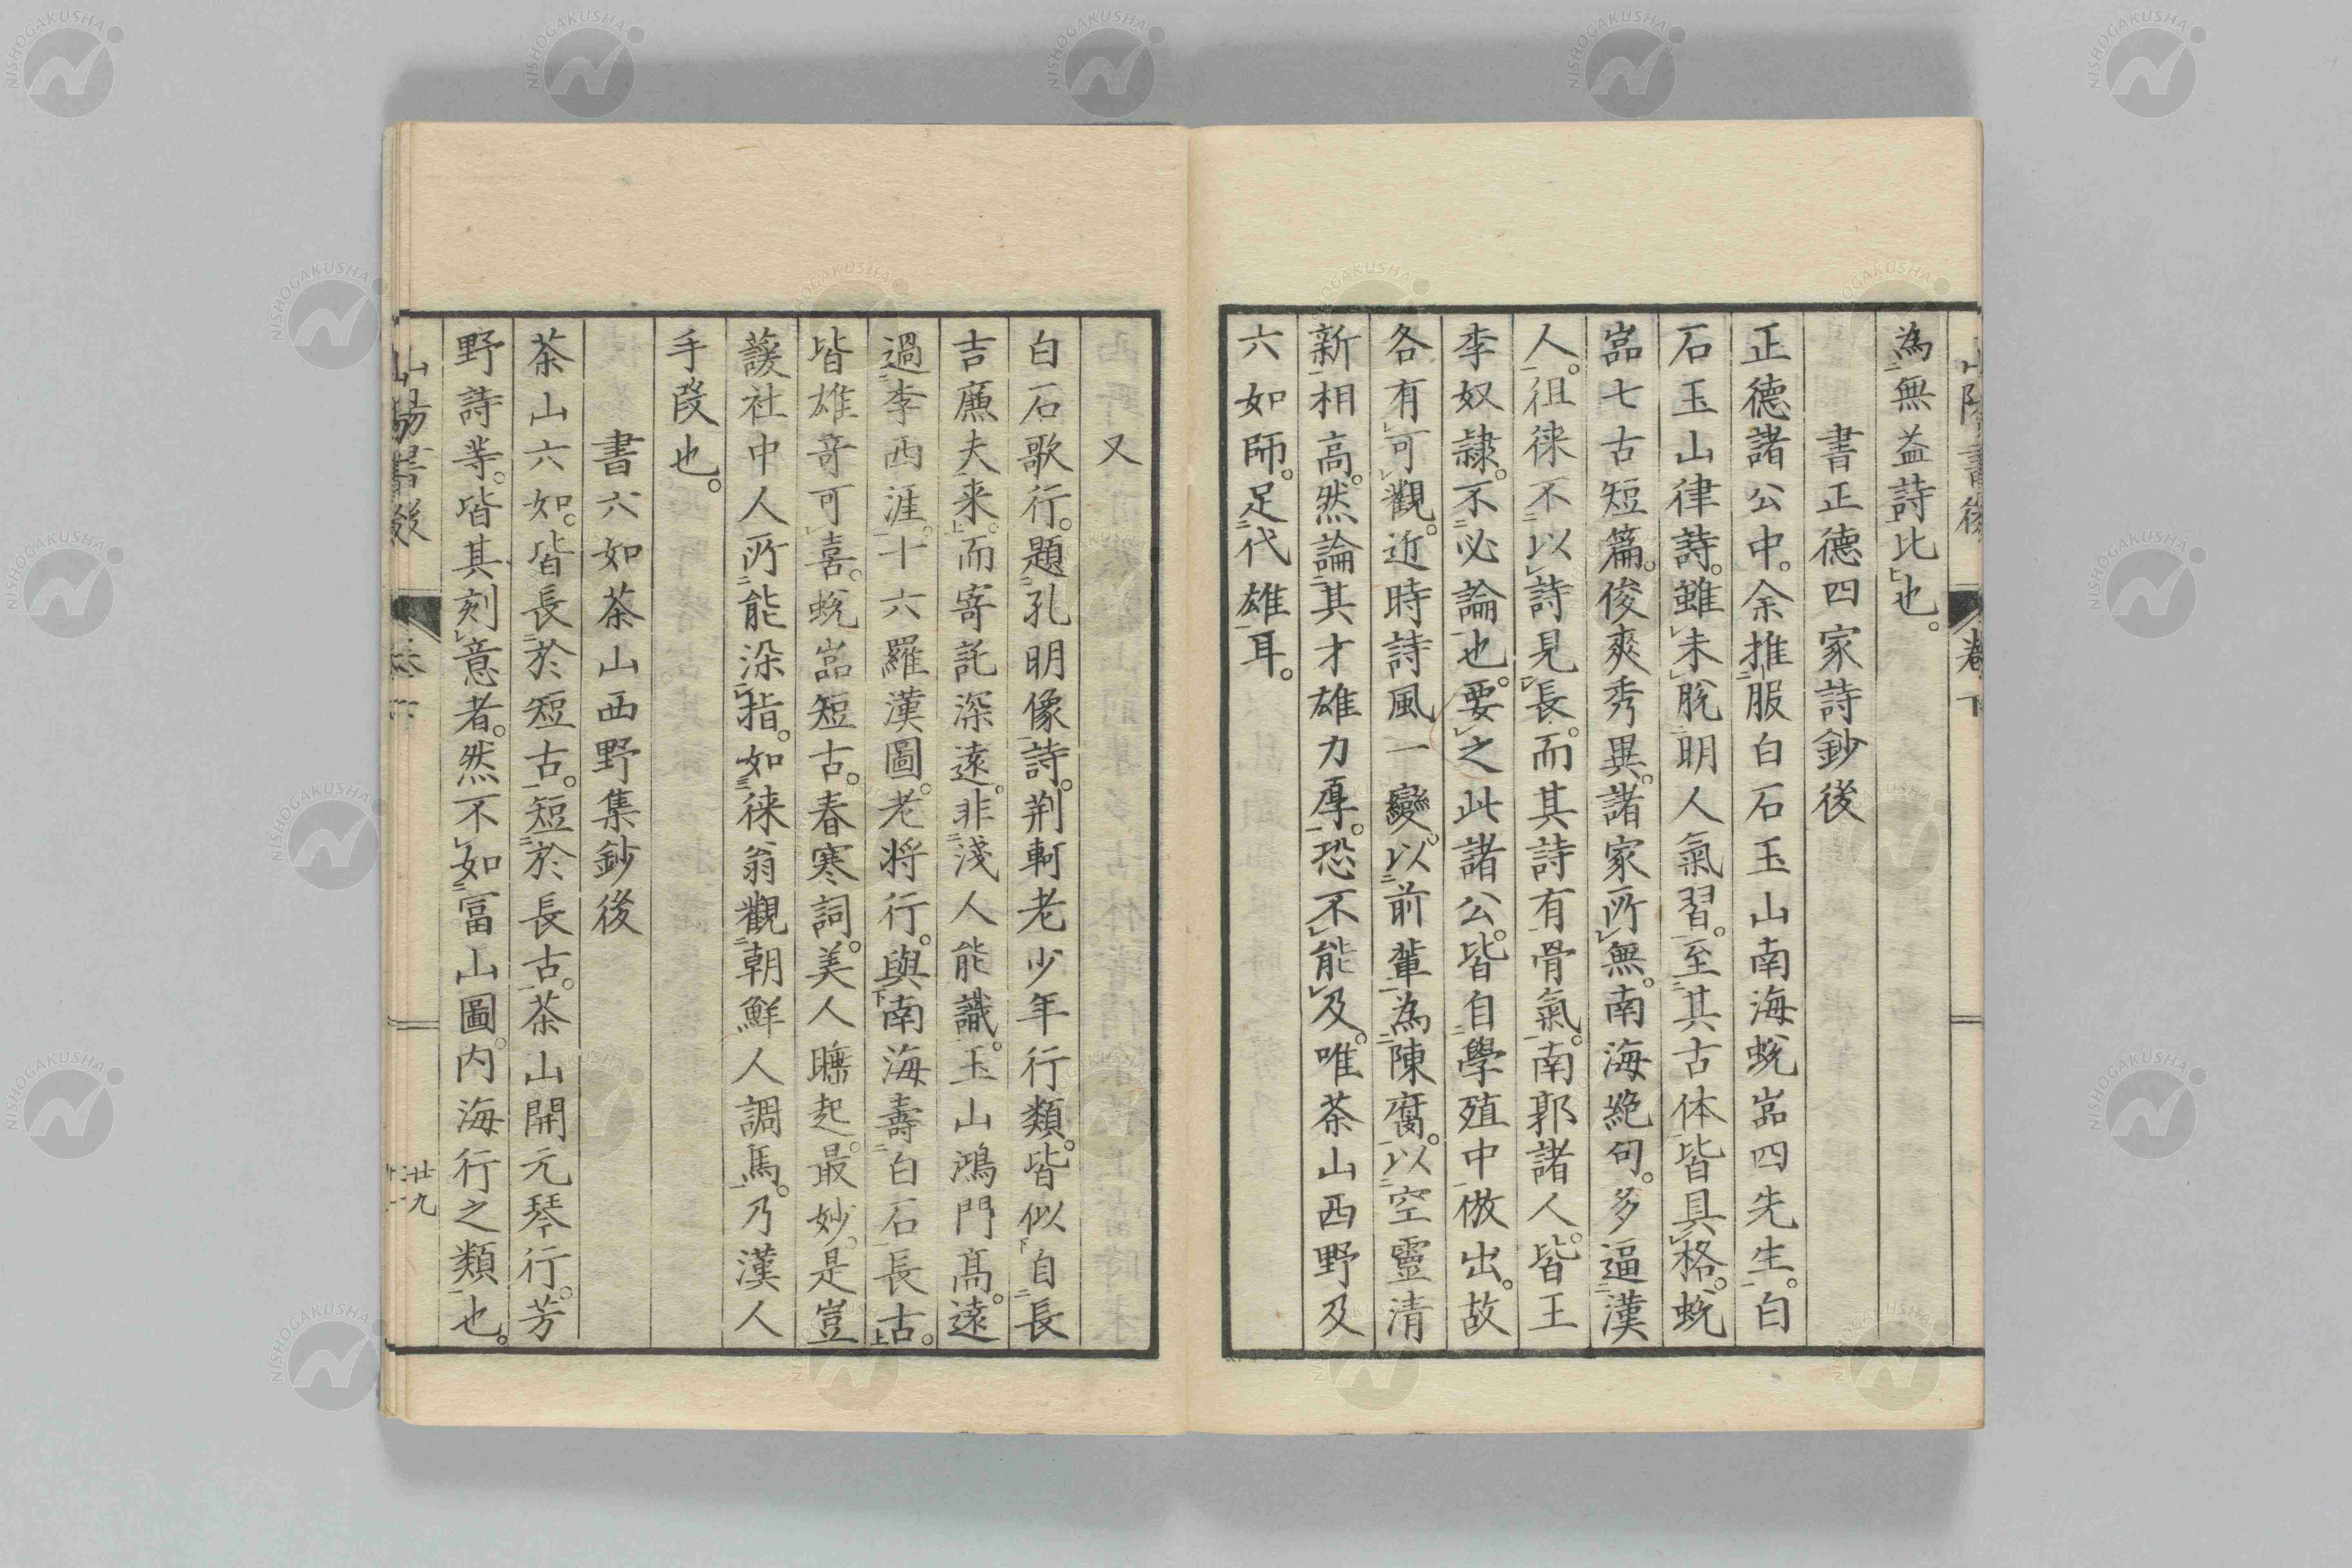 為無益詩比也。
書正德四家詩鈔後
正德諸公中。余推服白石玉山南海蛻嵓四先生。白
石玉山律詩。雖未脫明人氣習。至其古体皆具格。蛻
嵓七古短篇。俊爽秀異。諸家所無。南海絕句。多逼漢
人。徂徠不以詩見長。而其詩有骨氣。南郭諸人。皆王
李奴隷。不必論也。要之此諸公。皆自學殖中倣出。故
各有可觀。近時詩風一變。以前輩為陳腐。以空靈清
新相高。然論其才雄力厚。恐不能及。唯茶山西野及
六如師。足代雄耳。
又
白石歌行。題孔明像詩。荆軻老少年行類。皆似自長
吉廉夫来。而寄託深遠。非淺人能識。玉山鴻門高。遠
過李西涯。十六羅漢圖。老将行。與南海壽白石長古。
皆雄竒可喜。蛻嵓短古。春寒詞。美人睡起。最妙。是豈
蘐社中人所能染指。如徠翁觀朝鮮人調馬。乃漢人
手段也。
書六如茶山西野集鈔後
茶山六如。皆長於短古。短於長古。茶山開元琴行。芳
野詩等。皆其刻意者。然不如富山圖。内海行之類也。
山陽書後
卷下
廿九
NISHOGAKUSHA